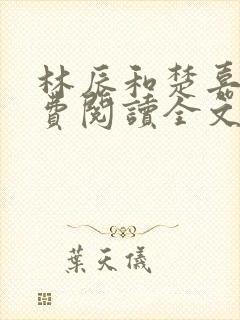 林辰和楚嘉
費閱讀全文
葉天儀